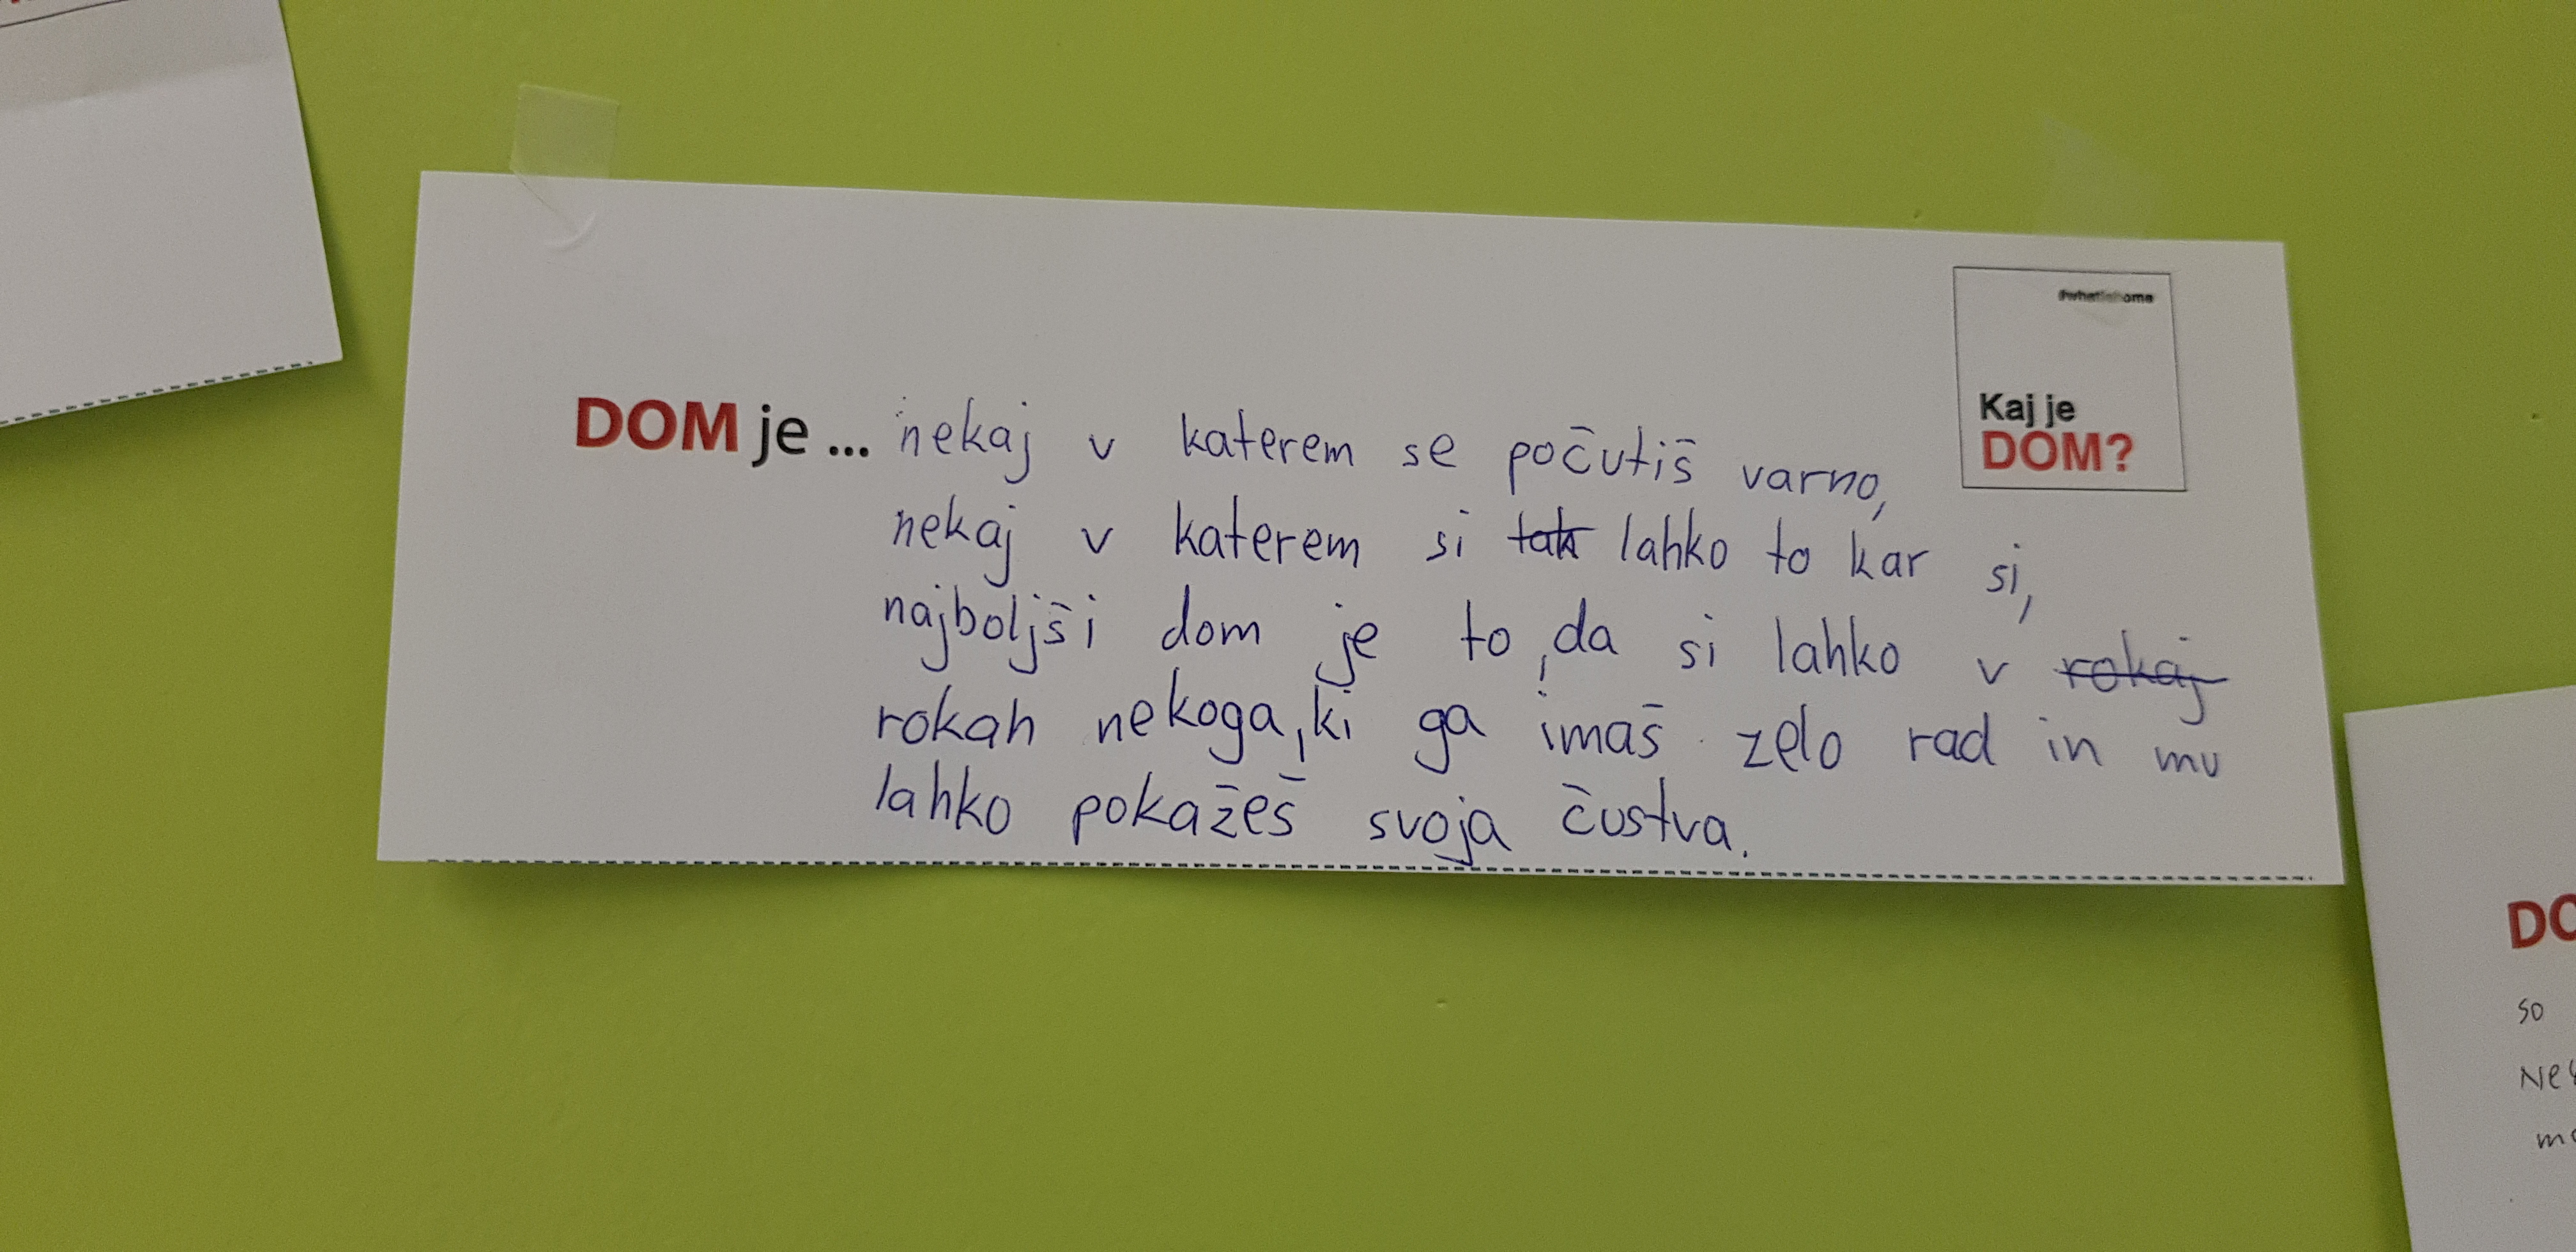 #whatishome
Kaj je
DOM?
DOM je ... nekaj v katerem se počutiš varno,
nekaj v katerem si tak lahko to kar si,
najboljši dom je to, da si lahko v rokaj
rokah nekoga, ki ga imaš zelo rad in mu
lahko pokažeš svoja čustva.
DO
so